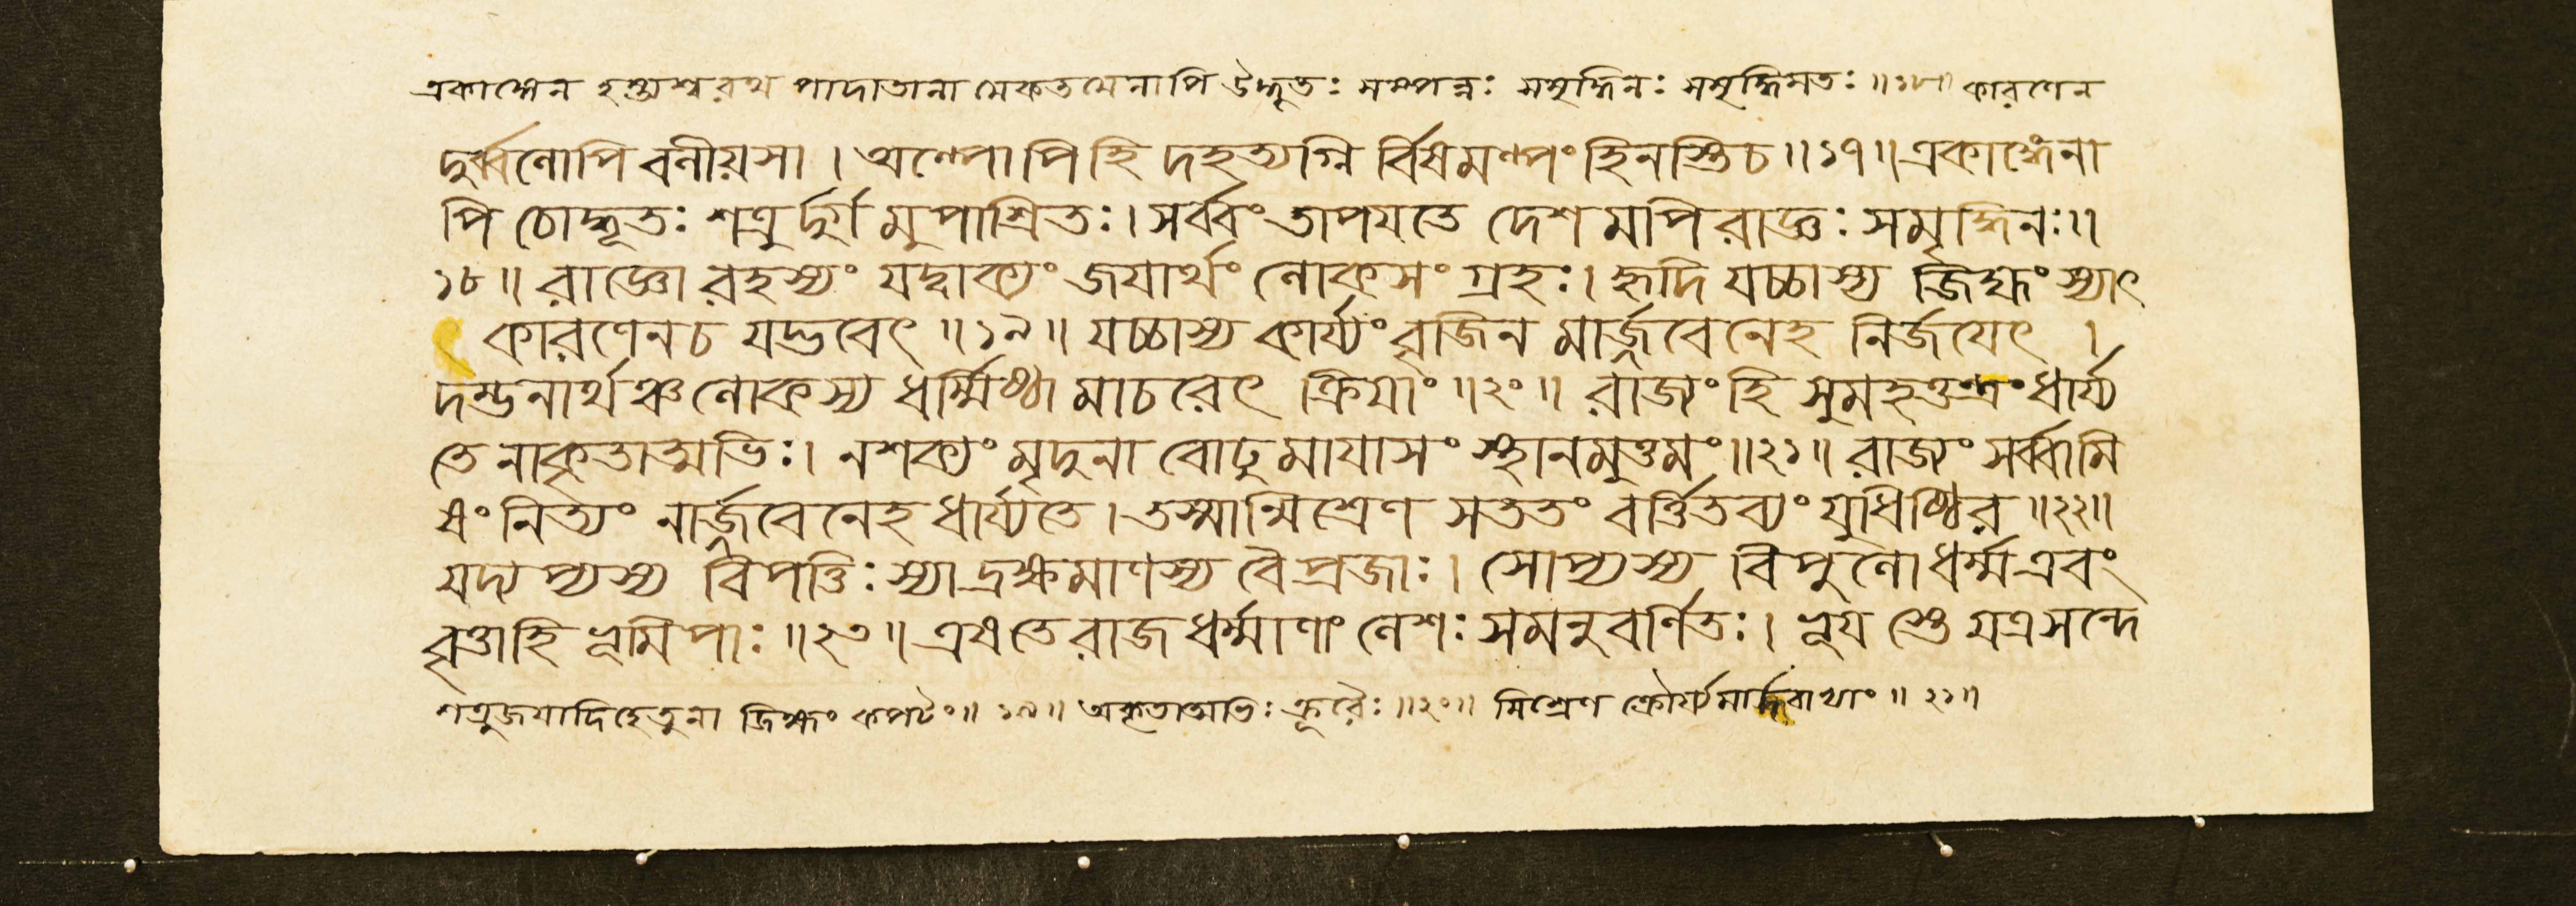 একাঙ্গেন হস্ত্যশ্ব রথ পাদাতানা মেকতমেনাপি উদ্ভূতঃ সম্পন্নঃ সমৃদ্ধিনঃ সমৃদ্ধিমতঃ ॥১৮॥ কারণেন
দুর্ব্বলোপি বলীয়সা । অল্পোপি হি দহত্যগ্নি র্বিষমল্পং হিনস্তি চ ॥১৭॥ একাঙ্গেনা
পি চোদ্ভূতঃ শত্রু র্দুর্গ মুপাশ্রিতঃ । সর্ব্বং তাপযতে দেশ মপি রাজ্ঞঃ সমৃদ্ধিনঃ ॥
১৮ ॥ রাজ্ঞো রহস্যং যদ্বাক্যং জযার্থং লোকসং গ্রহঃ । হৃদি যচ্চাস্য জিহ্মং স্যাৎ
কারণেন চ যদ্ভবেৎ ॥ ১৯ ॥ যচ্চাস্য কার্য্যং বৃজিন মার্জ্জবেনেহ নির্জযেৎ ।
দম্ভনার্থঞ্চ লোকস্য ধর্ম্মিষ্ঠা মাচরেৎ ক্রিযাং ॥২০॥ রাজ্যং হি সুমহত্তন্ত্রং ধার্য্য
তে নাকৃতাত্মভিঃ । ন শক্যং মৃদুনা বোঢু মাযাসং স্থানমুত্তমং ॥২১॥ রাজ্যং সর্ব্বামি
ষং নিত্যং নার্জ্জবেনেহ ধার্য্যতে । তস্মান্মিশ্রেণ সততং বর্ত্তিতব্যং যুধিষ্ঠির ॥২২॥
যদ্যপ্যস্য বিপত্তিঃ স্যাদ্রক্ষমাণস্য বৈ প্রজাঃ । সোপ্যস্য বিপুলো ধর্ম্ম এবং
বৃত্তা হি ভূমিপাঃ ॥২৩॥ এষ তে রাজ ধর্ম্মাণাং লেশঃ সমনু বর্ণিতঃ । ভূয স্তে যত্র সন্দে
শত্রুজযাদিহেতুনা জিহ্মং কপটং ॥ ১৯ ॥ অকৃতাত্মভিঃ ক্রূরৈঃ ॥২০॥ মিশ্রেণ ক্রৌর্য্যমার্দ্দবাখ্যাং ॥ ২১॥